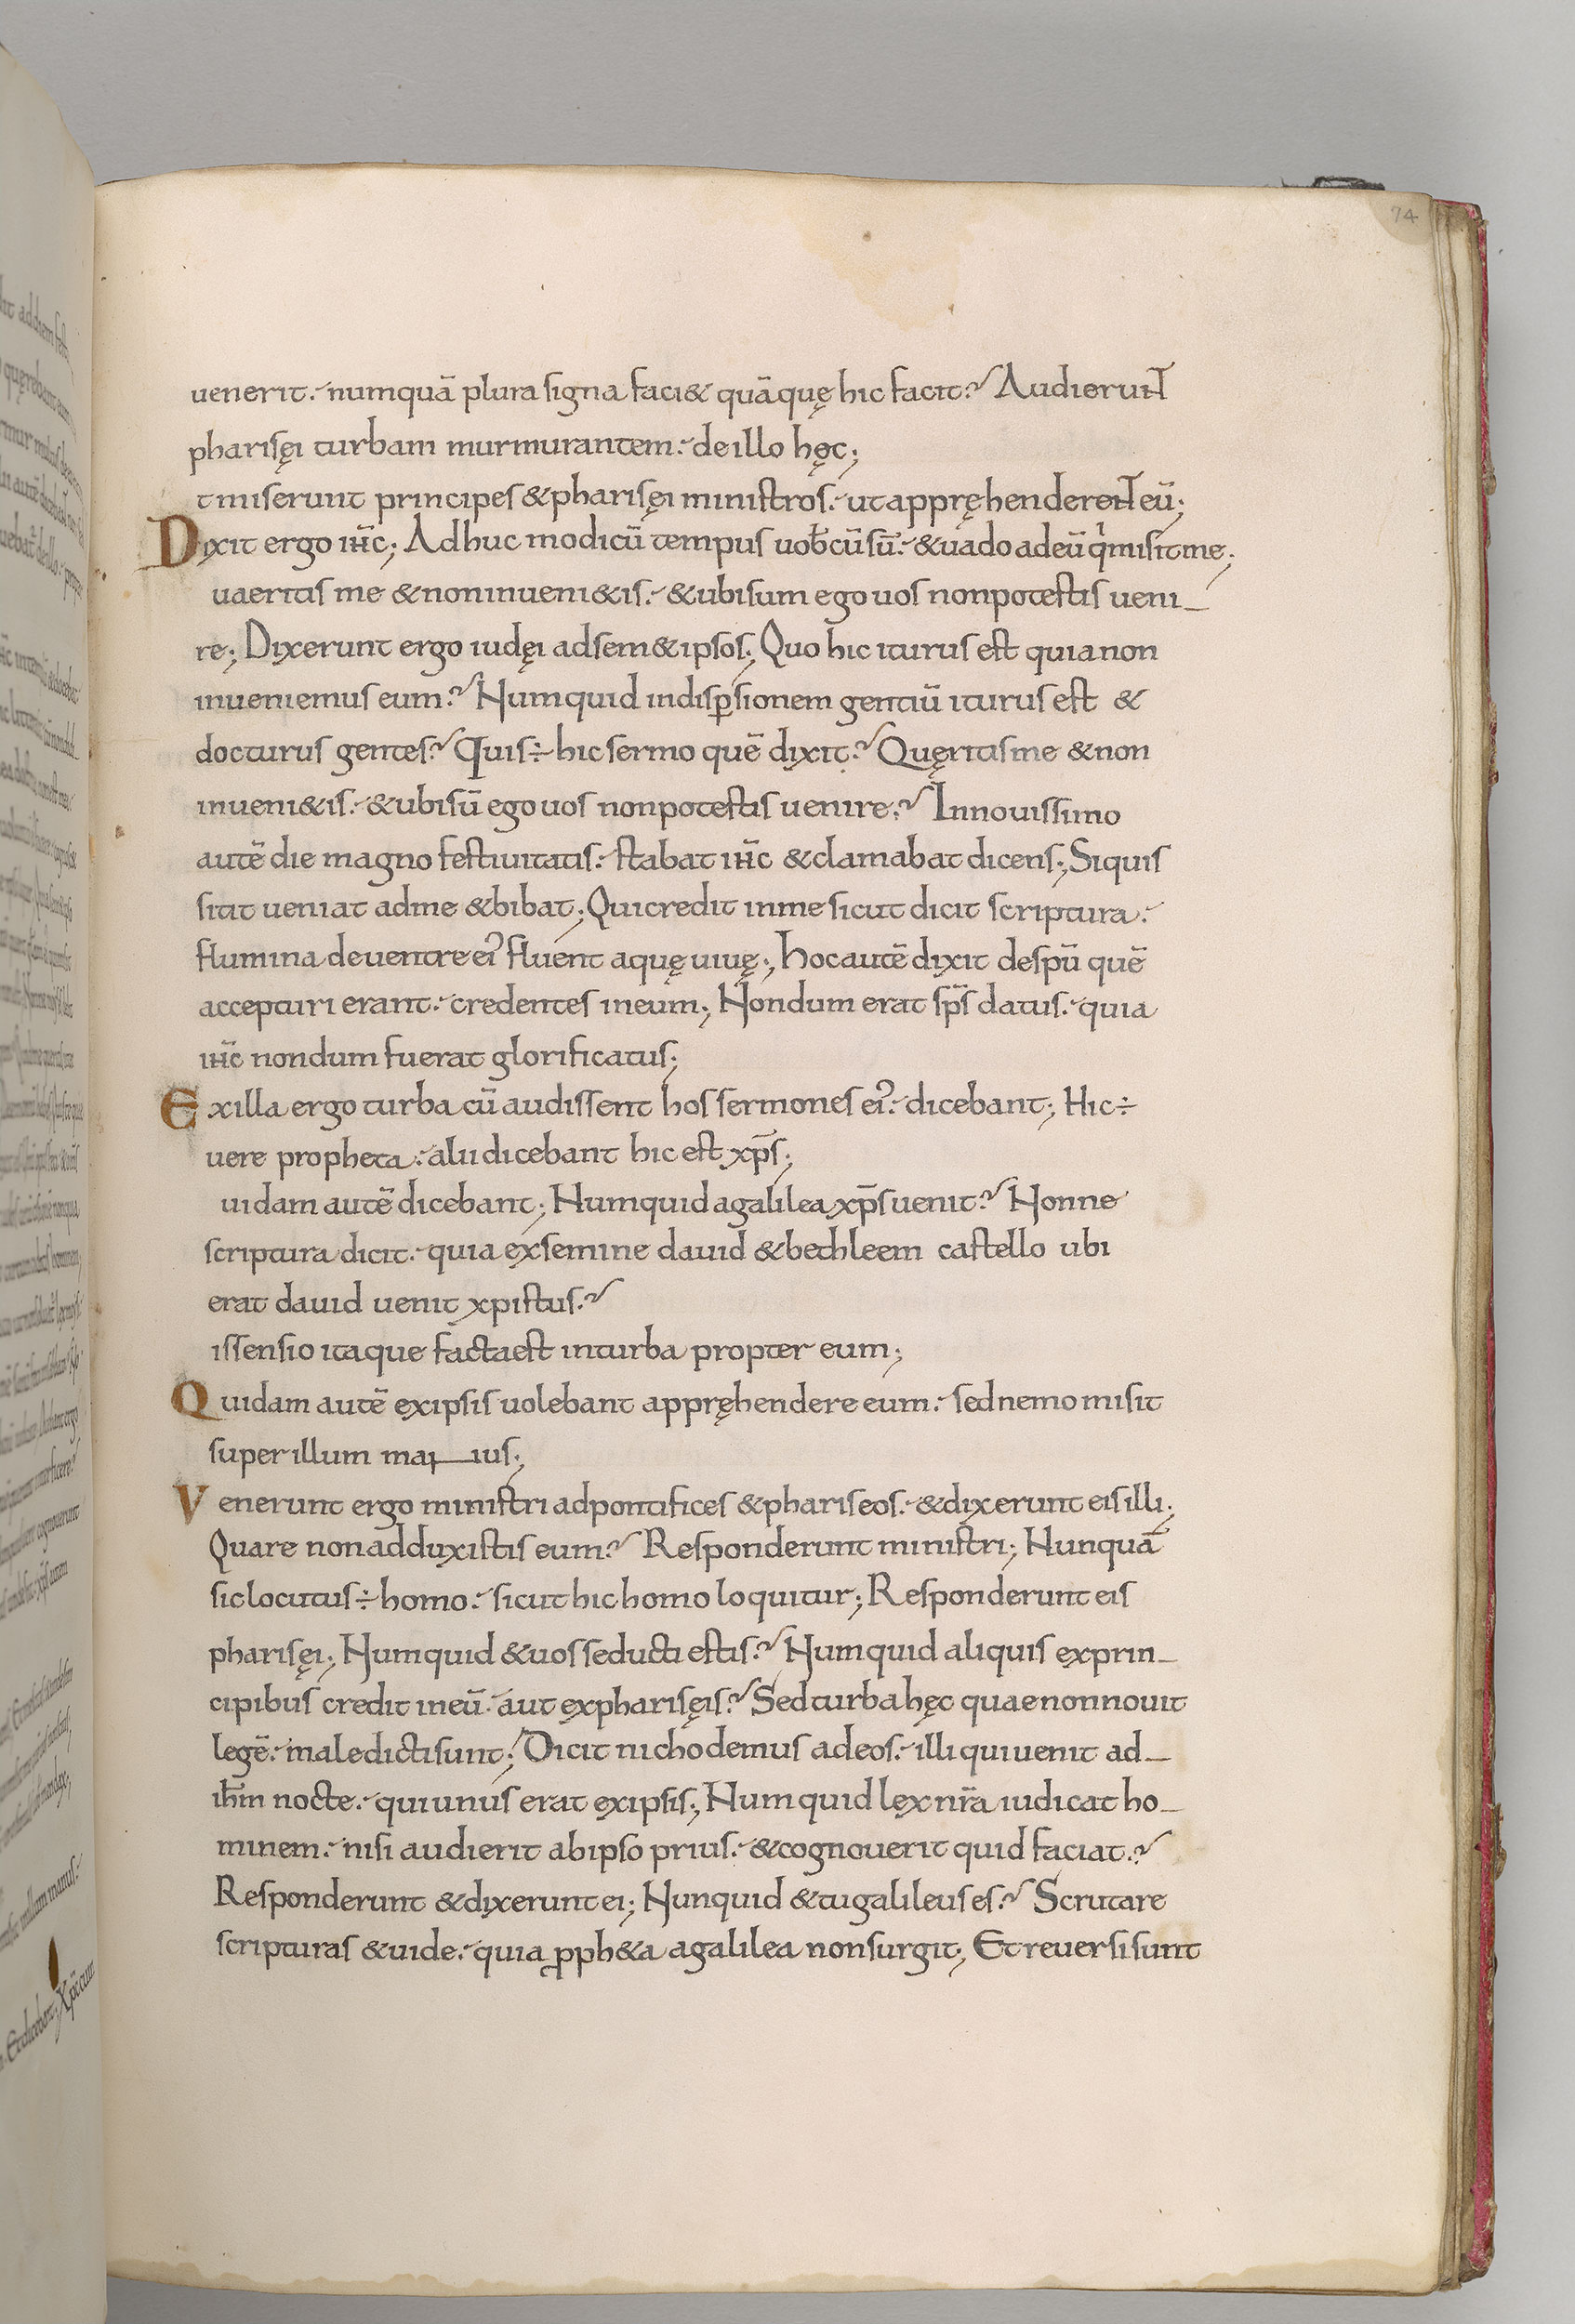 74
uenerit. numquā plura signa faci& quāquę hic facit? Audierunt
pharisęi turbam murmurantem. de illo hęc;
t miserunt principes & pharisęi ministros. ut appręhenderent eū;
Dixit ergo iħc; Adhuc modicū tempus uob̄cū sū. & uado ad eū qͥ misit me;
uaeritis me & non inueni&is. & ubi sum ego uos non potestis ueni_
re; Dixerunt ergo iudęi ad sem&ipsos; Quo hic iturus est quia non
inueniemus eum? Numquid in disꝑsionem gentiū iturus est &
docturus gentes? Quis ÷ hic sermo quē dixit? Quęritis me & non
inueni&is. & ubi sū ego uos non potestis uenire? In nouissimo
autē die magno festiuitatis. stabat iħc & clamabat dicens; Siquis
sitit ueniat ad me & bibat; Qui credit in me sicut dicit scriptura.
flumina de uentre ei᾽ fluent aquę uiuę; Hoc autē dixit de spū quē
accepturi erant. credentes in eum; Nondum erat sp̄s datus. quia
iħc nondum fuerat glorificatus;
Ex illa ergo turba cū audissent hos sermones ei᾽. dicebant; Hic ÷
uere propheta. alii dicebant hic est xp̄s;
uidam autē dicebant; Numquid a galilea xp̄s uenit? Nonne
scriptura dicit. quia ex semine dauid & bethleem castello ubi
erat dauid uenit xpistus?
issensio itaque facta est in turba propter eum;
Quidam autē ex ipsis uolebant appręhendere eum. sed nemo misit
super illum man_us;
Venerunt ergo ministri ad pontifices & phariseos. & dixerunt eis illi;
Quare non adduxistis eum? Responderunt ministri; Nunquā
sic locutus ÷ homo. sicut hic homo loquitur; Responderunt eis
pharisęi; Numquid & uos seducti estis? Numquid aliquis ex prin_
cipibus credit in eū. aut ex pharisęis? Sed turba hęc quae non nouit
legē. maledicti sunt; Dicit nichodemus ad eos. illi qui uenit ad_
ih̄m nocte. qui unus erat ex ipsis; Numquid lex nr̄a iudicat ho_
minem. nisi audierit ab ipso prius. & cognouerit quid faciat?
Responderunt & dixerunt ei; Nunquid & tu galileus es? Scrutare
scripturas & uide. quia ꝓph&a a galilea non surgit; Et reuersi sunt